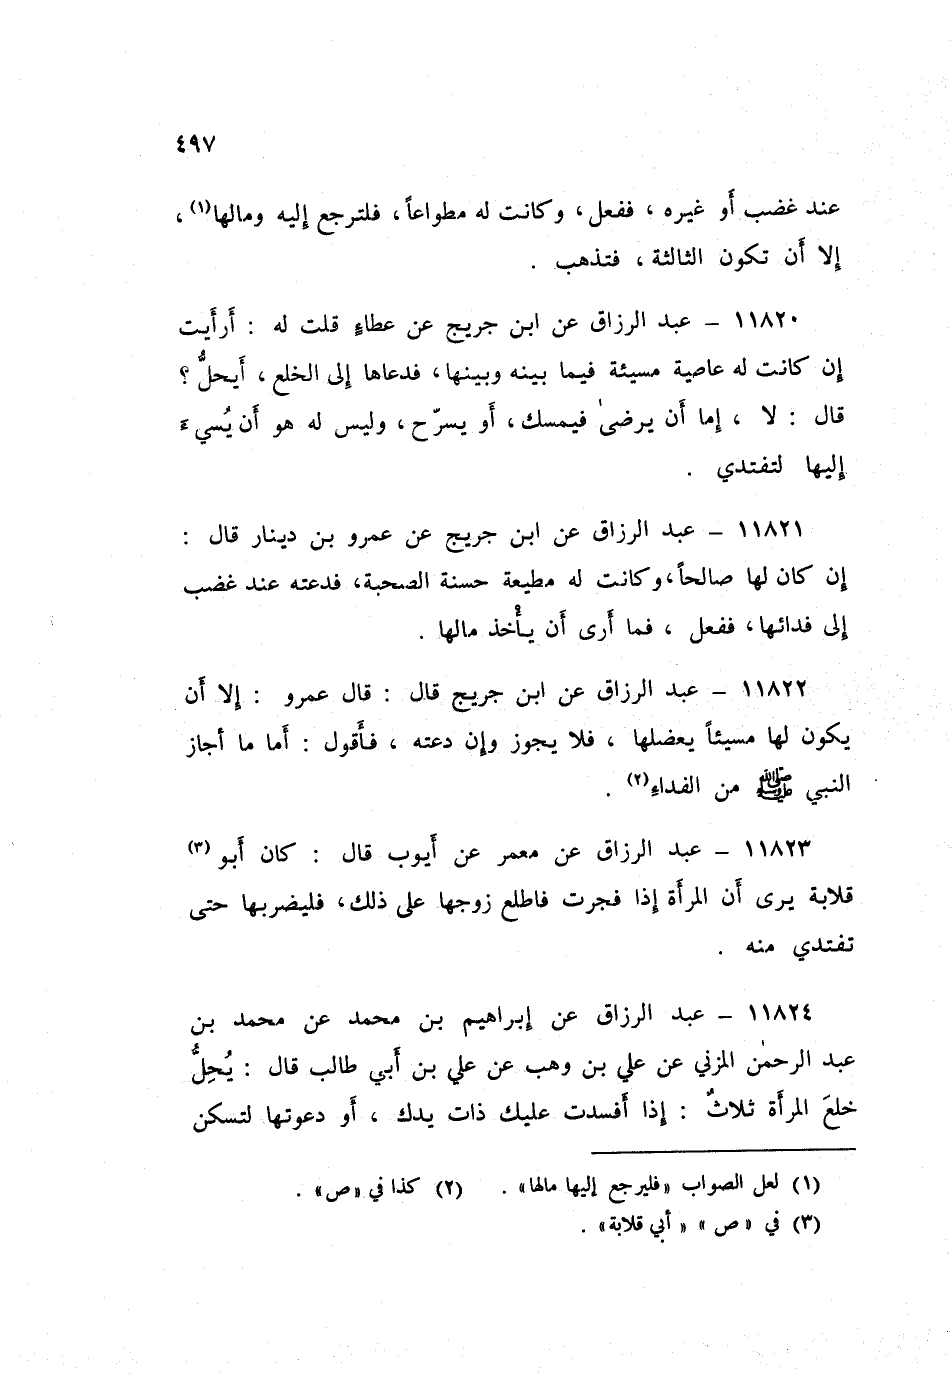 ٤٩٧
عند غضب أو غيره ، ففعل ، وكانت له مطواعاً ، فلترجع إليه ومالها(١) ،
إلا أن تكون الثالثة ، فتذهب .
١١٨٢٠ – عبد الرزاق عن ابن جريج عن عطاءٍ قلت له : أرأيت
إن كانت له عاصية مسيئة فيما بينه وبينها ، فدعاها إلى الخلع ، أيحلُّ ؟
قال : لا ، إما أن يرضىٰ فيمسك ، أو يسرّح ، وليس له هو أن يُسيءَ
إليها لتفتدي .
١١٨٢١ – عبد الرزاق عن ابن جريج عن عمرو بن دينار قال :
إن كان لها صالحاً ، وكانت له مطيعة حسنة الصحبة ، فدعته عند غضب
إلى فدائها ، ففعل ، فما أرى أن يأْخذ مالها .
١١٨٢٢ – عبد الرزاق عن ابن جريج قال : قال عمرو : إلا أن
يكون لها مسيئاً يعضلها ، فلا يجوز وإن دعته ، فأقول : أما ما أجاز
النبي ﷺ من الفداءِ(٢) .
١١٨٢٣ – عبد الرزاق عن معمر عن أيوب قال : كان أبو (٣)
قلابة يرى أن المرأة إذا فجرت فاطلع زوجها على ذلك ، فليضربها حتى
تفتدي منه .
١١٨٢٤ – عبد الرزاق عن إبراهيم بن محمد عن محمد بن
عبد الرحمٰن المزني عن علي بن وهب عن علي بن أبي طالب قال : يُحِلُّ
خلعَ المرأة ثلاثٌ : إذا أفسدت عليك ذات يدك ، أو دعوتها لتسكن
(١) لعل الصواب «فليرجع إليها مالها» . (٢) كذا في «ص» .
(٣) في «ص» «أبي قلابة» .